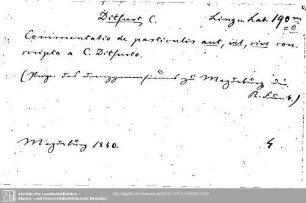 Ditfurt, C. Lingu. Lat. 190 m
Commentatio de particulis aut, vel, sive con-
scripta a C. Ditfurto.
(Progr. des Domgymnasiums zu Magdeburg
Magdeburg 1840. 4
Sächsische Landesbibliothek -
Staats- und Universitätsbibliothek Dresden